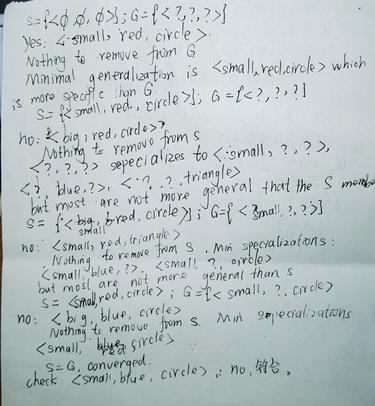 S={<∅, ∅, ∅>}; G={<?,?,?>}
Yes: <small, red, circle>.
Nothing to remove from G
Minimal generalization is <small, red, circle> which
is more specific than G.
S={<small, red, circle>}; G={<?, ?, ?]
no: <big, red, circle>
Nothing to remove from S
<?, ?, ?> sepecializes to <small, ?, ?>,
<?, blue, ?>, <?, ?, triangle>
but most are not more general that the S membe
S={<small, red, circle>}; G={<small, ?, ?>}
no: <small, red, triangle>
Nothing to remove from S. Min specializations:
<small, blue, ?>. <small, ?, circle>
but most are not more general than S
S=<small, red, circle>; G={<small, ?, circle>
no: <big, blue, circle>
Nothing to remove from S. Min sepecializations
<small, circle>
S=G, converged.
check <small, blue, circle> : no, 符合。